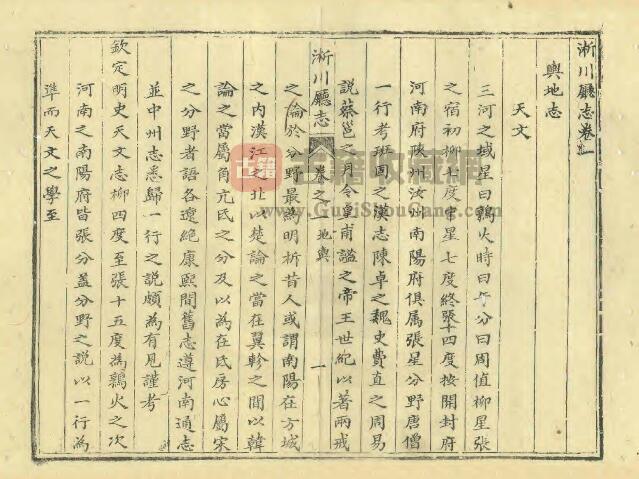 淅川廳志卷之一
輿地志
天文
三河之域星曰鶉火時曰午分曰周值柳星張
之宿初柳七度中星七度終張十四度按開封府
河南府陝州汝州南陽府俱属張星分野唐僧
一行考班固之漢志陳卓之魏史費直之周易
說蔡邕之月令皇甫謐之帝王世紀以著兩戒
淅川廳志
卷之一
地輿
一
之論於分野最為明析昔人或謂南陽在方城
之内漢江之北以楚論之當在翼軫之間以韓
論之當屬角亢氐之分及以為在氐房心屬宋
之分野者語各遼絶康熙間舊志遵河南通志
並中州志悉歸一行之說頗為有見謹考
欽定明史天文志柳四度至張十五度為鶉火之次
河南之南陽府皆張分蓋分野之說以一行為
準而天文之學至
古籍收藏網
www.GujiShouCang.com